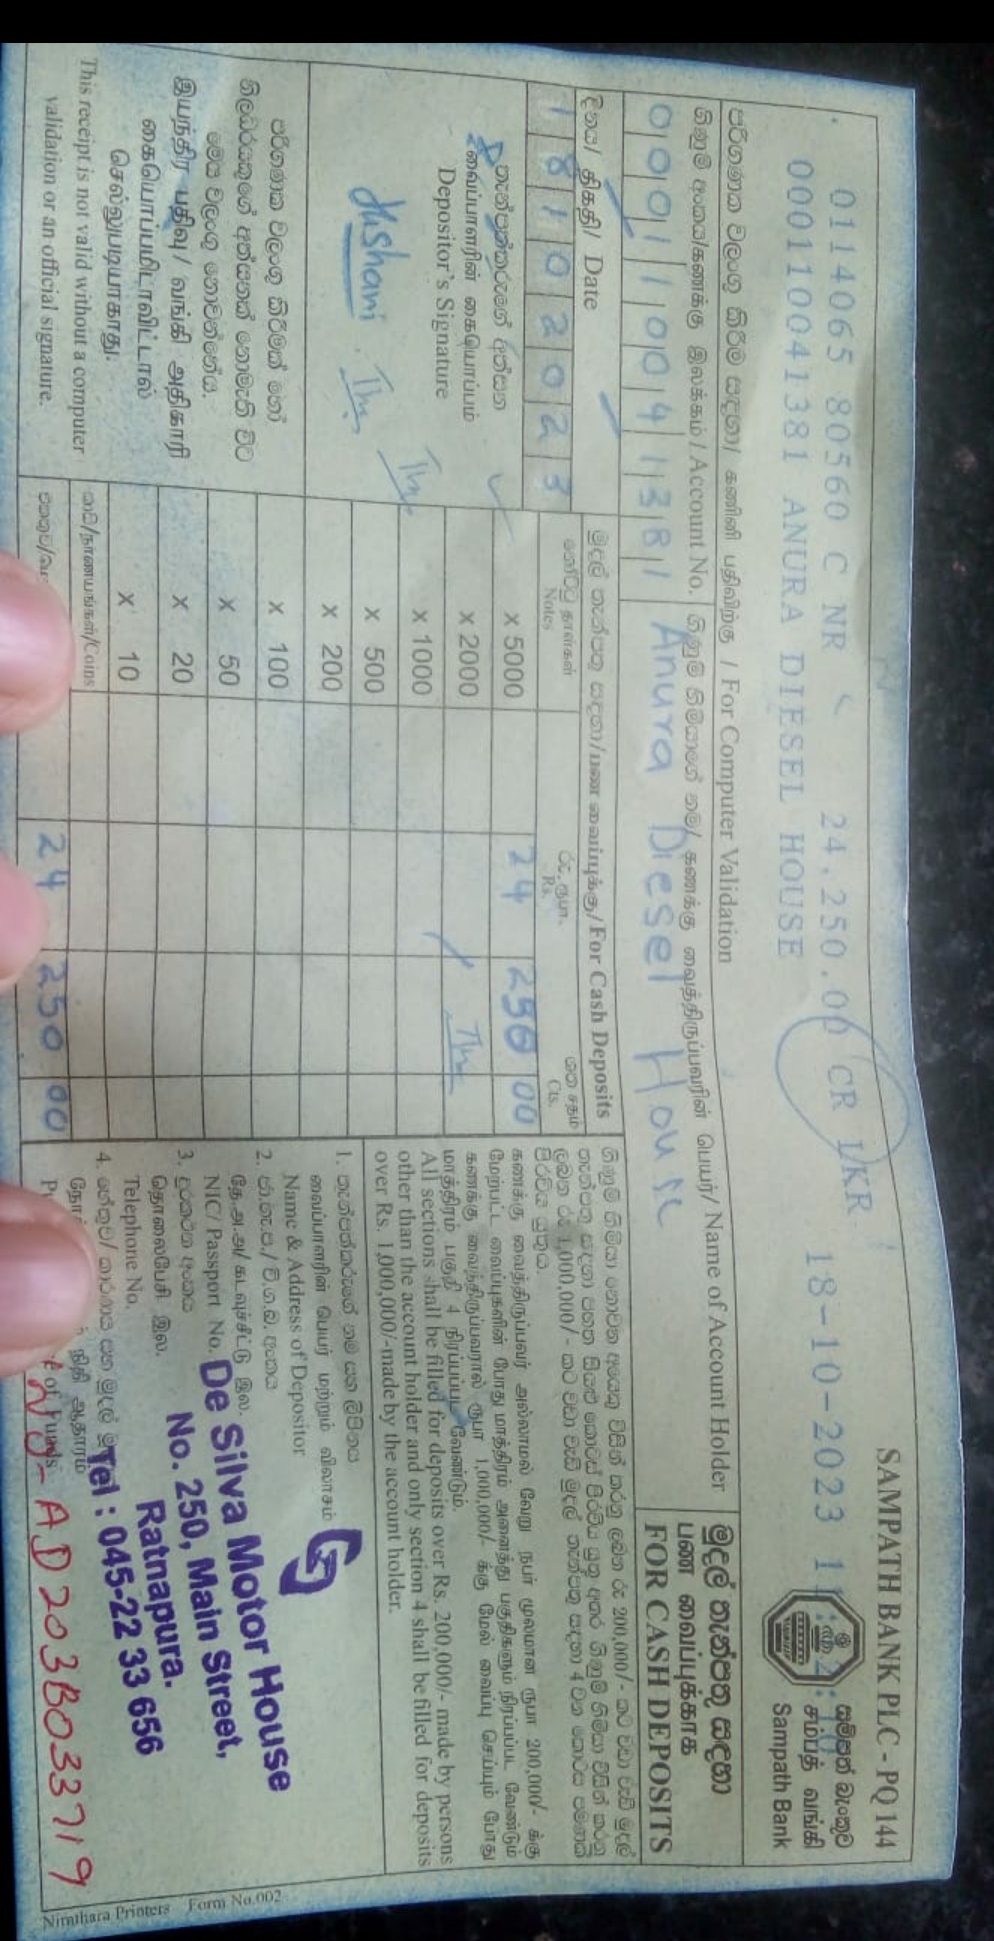 SAMPATH BANK PLC - PQ 144
0114065 80560 C NR 24,250.00 CR LKR 18-10-2023
000110041381 ANURA DIESEL HOUSE
සම්පත් බැංකුව
சம்பத் வங்கி
Sampath Bank
පරිගණක වලංගු කිරීම සඳහා/ கணினி பதிவிற்கு / For Computer Validation
මුදල් තැන්පතු සඳහා
பண வைப்புக்காக
FOR CASH DEPOSITS
ගිණුම් අංකය/கணக்கு இலக்கம்/Account No.
000110041381
ගිණුම් හිමියාගේ නම/ கணக்கு வைத்திருப்பவரின் பெயர்/ Name of Account Holder
Anura Diesel House
දිනය/ திகதி/ Date
18102023
තැන්පත්කරුගේ අත්සන
வைப்பாளரின் கையொப்பம்
Depositor's Signature
පරිගණක වලංගු කිරීමක් හෝ
නිලධරයකුගේ අත්සනක් නොමැති විට
මෙය වලංගු නොවන්නේය.
இயந்திர பதிவு/ வங்கி அதிகாரி
கையொப்பமிடாவிட்டால்
செல்லுபடியாகாது.
This receipt is not valid without a computer
validation or an official signature.
මුදල් තැන්පතු සඳහා/பண வைப்புக்கு/For Cash Deposits
නෝට්ටු தாள்கள்
Notes
රු. ரூபா.
Rs.
ශත சதம்
Cts.
x 5000 24 250 00
x 2000
x 1000
x 500
x 200
x 100
x 50
x 20
x 10
කාසි/நாணயங்கள்/Coins
24 250 00
ගිණුම් හිමියා නොවන අයෙකු විසින් කරනු ලබන රු. 200,000/- කට වඩා වැඩි මුදල්
கணக்கு வைத்திருப்பவர் அல்லாமல் வேறு நபர் மூலமான ரூபா 200,000/- க்கு
மேற்பட்ட வைப்புகளின் போது மாத்திரம் அனைத்து பகுதிகளும் நிரப்பப்பட வேண்டும்
கணக்கு வைத்திருப்பவரால் ரூபா 1,000,000/- க்கு மேல் வைப்பு செய்யும் போது
மாத்திரம் பகுதி 4 நிரப்பப்பட வேண்டும்.
All sections shall be filled for deposits over Rs. 200,000/- made by persons
other than the account holder and only section 4 shall be filled for deposits
over Rs. 1,000,000/-made by the account holder.
1. තැන්පත්කරුගේ නම සහ ලිපිනය
வைப்பாளரின் பெயர் மற்றும் விலாசம்
Name & Address of Depositor
2. ජා.හැ.ප./ වි.ග.බ. අංකය
தே.அ.அ/ கடவுச்சீட்டு இல.
NIC/ Passport No.
3. දුරකථන අංකය
தொலைபேசி இல.
Telephone No.
4.
of Funds
De Silva Motor House
No. 250, Main Street,
Ratnapura.
Tel : 045-22 33 656
AD203B033719
Nimthara Printers Form No.002